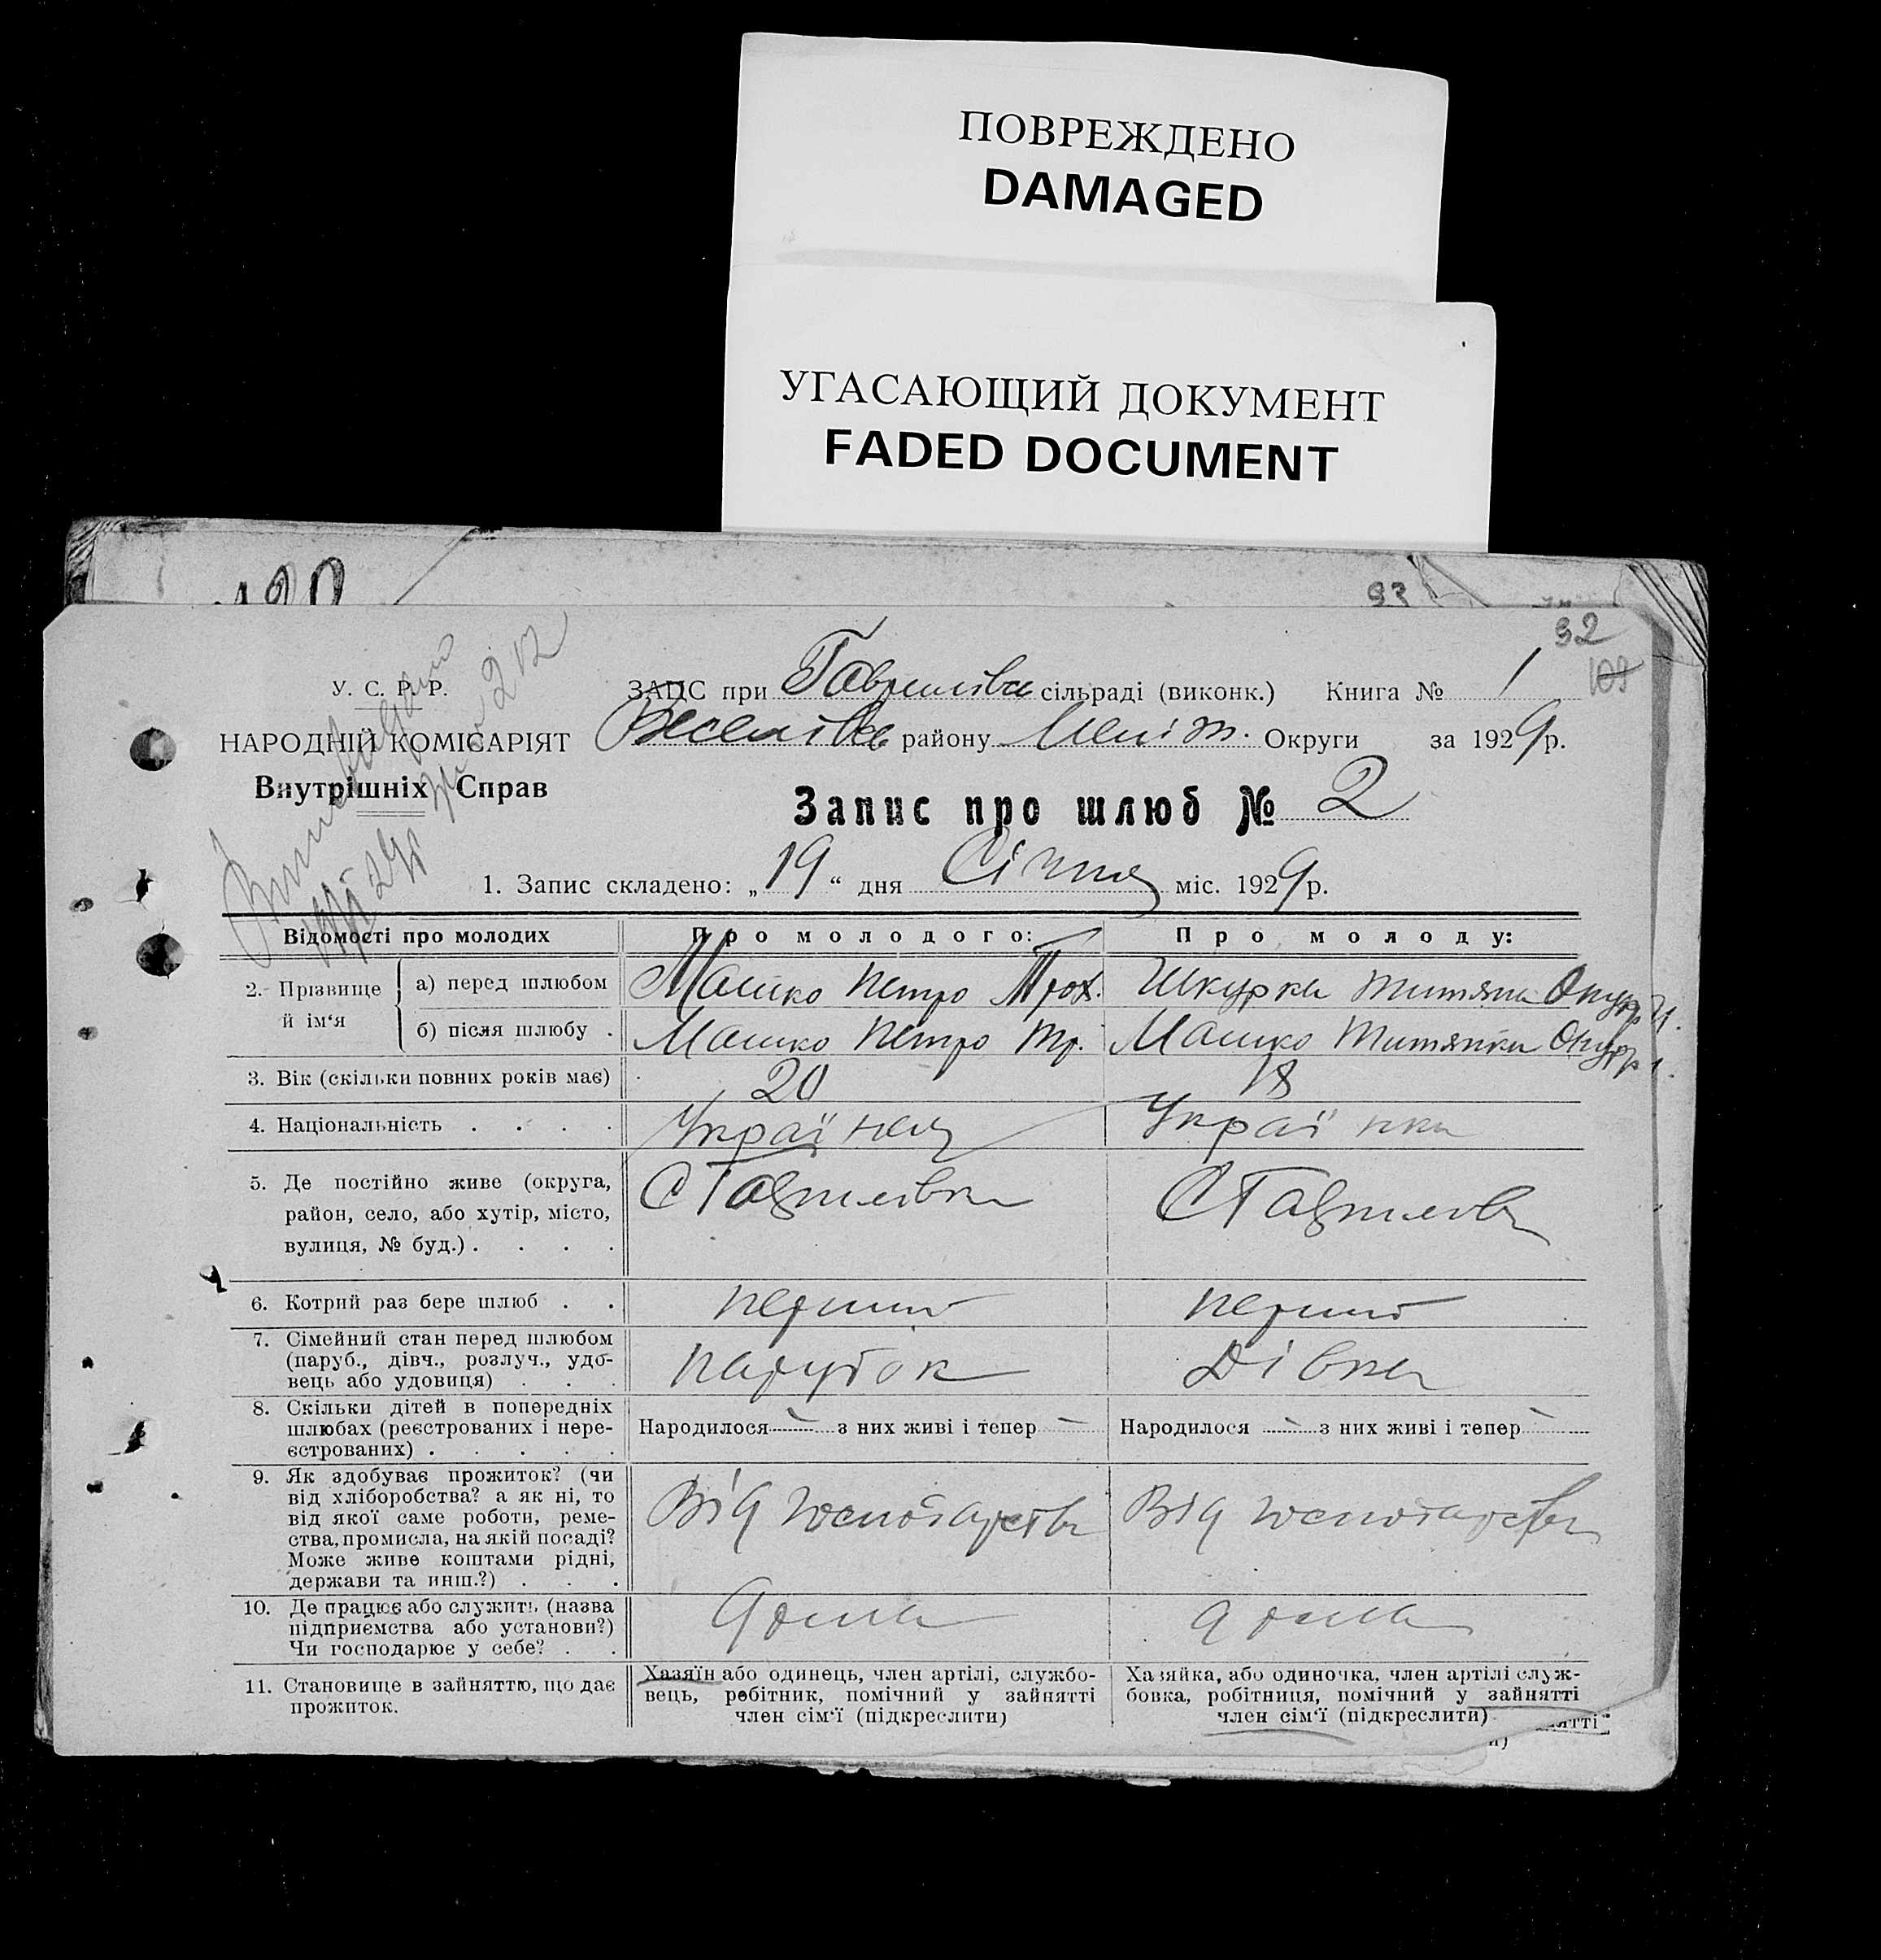 ПОВРЕЖДЕНО
DAMAGED
УГАСАЮЩИЙ ДОКУМЕНТ
FADED DOCUMENT
93
92
109
У. С. Р. Р.
НАРОДНІЙ КОМІСАРІЯТ
Внутрішніх Справ
ЗАПС при Гаврилівс сільраді (виконк.) Книга № 1
Веселівс району Меліт. Округи за 1929р.
Запис про шлюб № 2
1. Запис складено: „19“ дня Січня міс. 1929р.
Відомості про молодих Про молодого: Про молоду:
2. Прізвище й ім‘я
а) перед шлюбом Машко Петро Трох. Шкурка Титяна
б) після шлюбу . Машко Петро Тр. Машко Титянка
3. Вік (скільки повних років має) 20 18
4. Національність . . . . Українец Українка
5. Де постійно живе (округа,
район, село, або хутір, місто,
вулиця, № буд.) . . . .
С Гаврилівка С Гаврилівк
6. Котрий раз бере шлюб . . перший перший
7. Сімейний стан перед шлюбом
(паруб., дівч., розлуч., удо-
вець або удовиця) . . .
парубок Дівка
8. Скільки дітей в попередніх
шлюбах (реєстрованих і нере-
єстрованих) . . . . .
Народилося — з них живі і тепер — Народилося — з них живі і тепер —
9. Як здобуває прожиток? (чи
від хліборобства? а як ні, то
від якої саме роботи, реме-
ства, промисла, на якій посаді?
Може живе коштами рідні,
держави та инш.?) . . .
Від господарства Від господарства
10. Де працює або служить (назва
підприємства або установи?)
Чи господарює у себе? . .
дома дома
11. Становище в зайняттю, що дає
прожиток.
Хазяїн або одинець, член артілі, службо-
вець, робітник, помічний у зайнятті
член сім‘ї (підкреслити)
Хазяйка, або одиночка, член артілі служ-
бовка, робітниця, помічний у зайнятті
член сім‘ї (підкреслити)